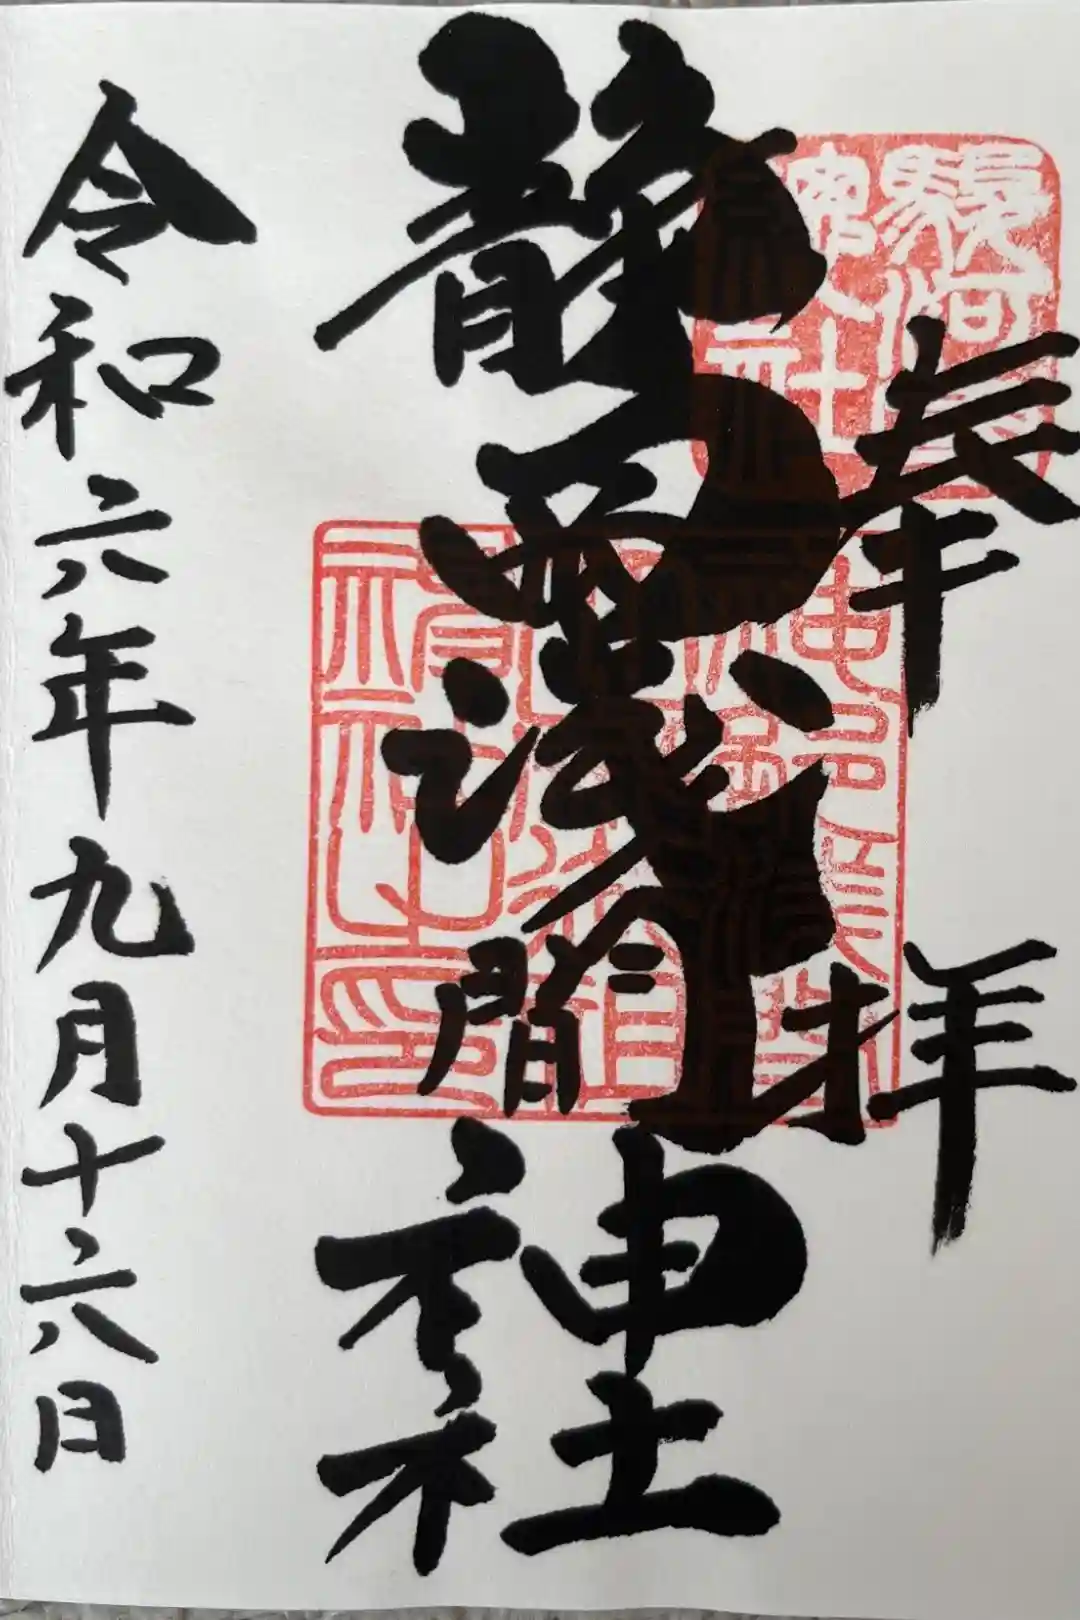 奉拝
静岡浅間神社
令和六年九月十六日